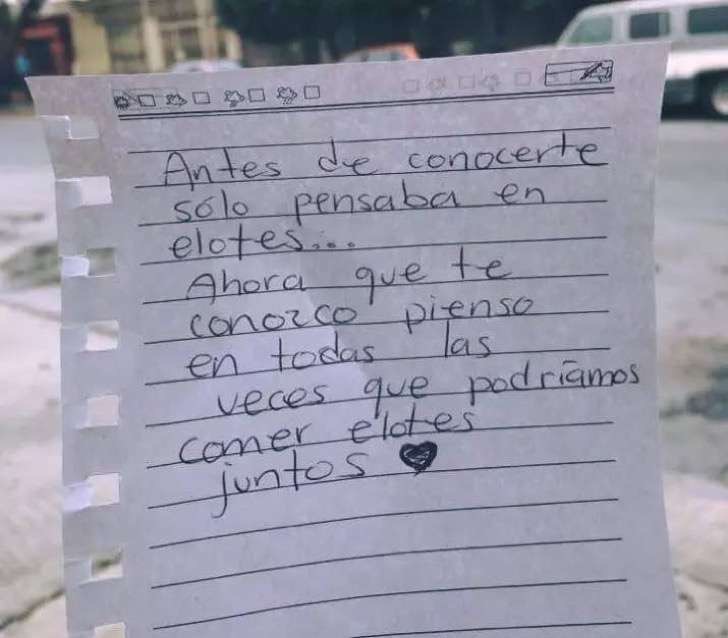 Antes de conocerte
sólo pensaba en
elotes...
Ahora que te
conozco pienso
en todas las
veces que podríamos
comer elotes
juntos ♥